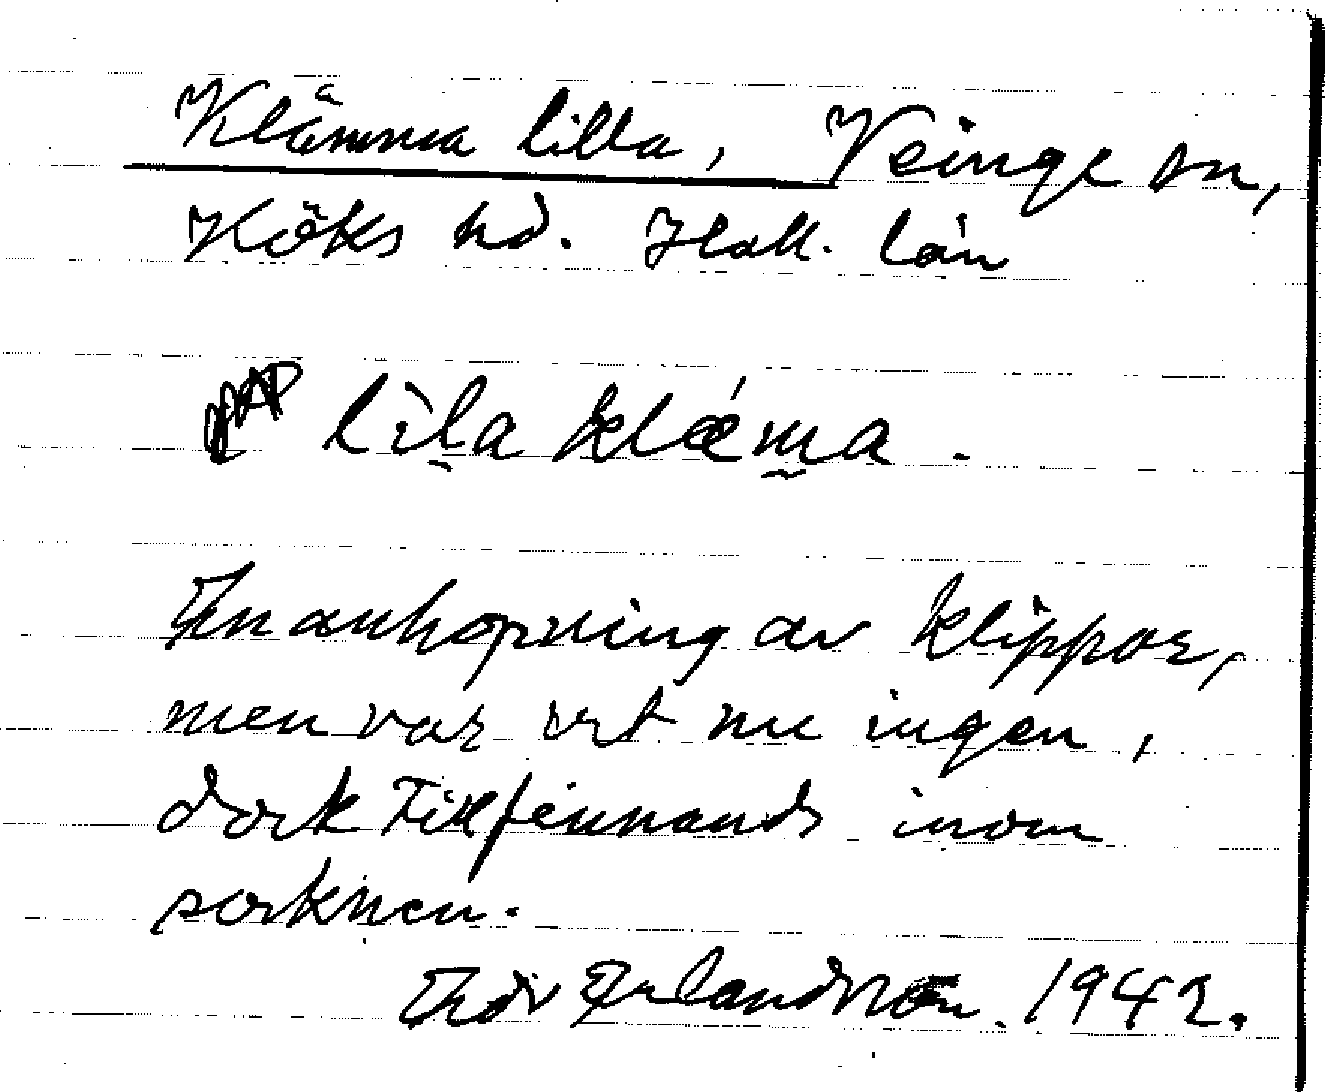 Klämma lilla, Veinge sn,
Höks hd. Hall. län
lìl̰a klǽm̰a.
En anhopning av klippor,
men var vet nu ingen,
dock tillfinnands inom
socknen.
Thor Erlandsson. 1942.